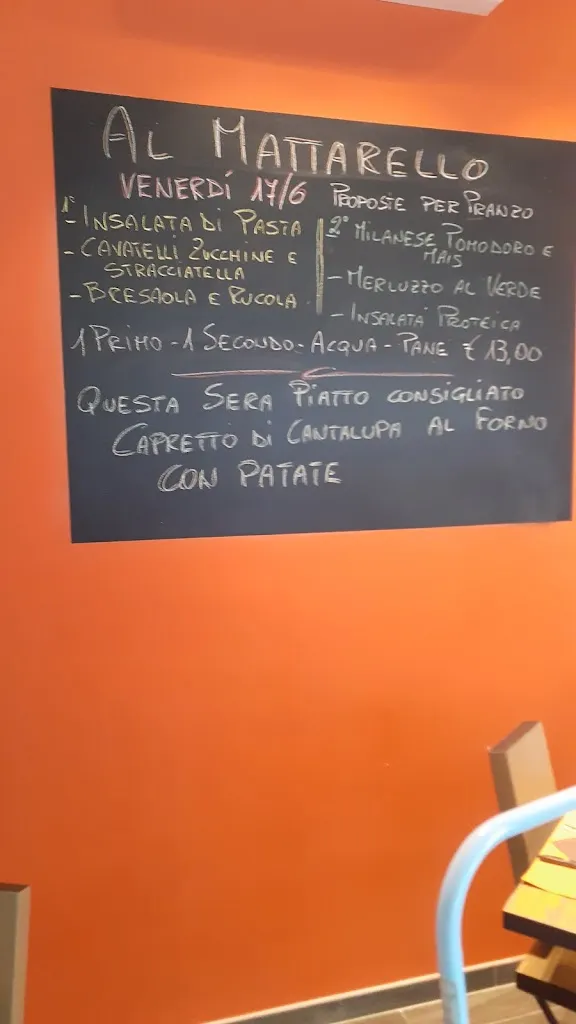 AL MATTARELLO
VENERDÍ 17/6 PROPOSTE PER PRANZO
1°
- INSALATA DI PASTA
- CAVATELLI ZUCCHINE E
STRACCIATELLA
- BRESAOLA E RUCOLA
2° MILANESE POMODORO E
MAIS
- MERLUZZO AL VERDE
- INSALATA PROTEICA
1 PRIMO - 1 SECONDO - ACQUA - PANE € 13,00
QUESTA SERA PIATTO CONSIGLIATO
CAPRETTO DI CANTALUPA AL FORNO
CON PATATE